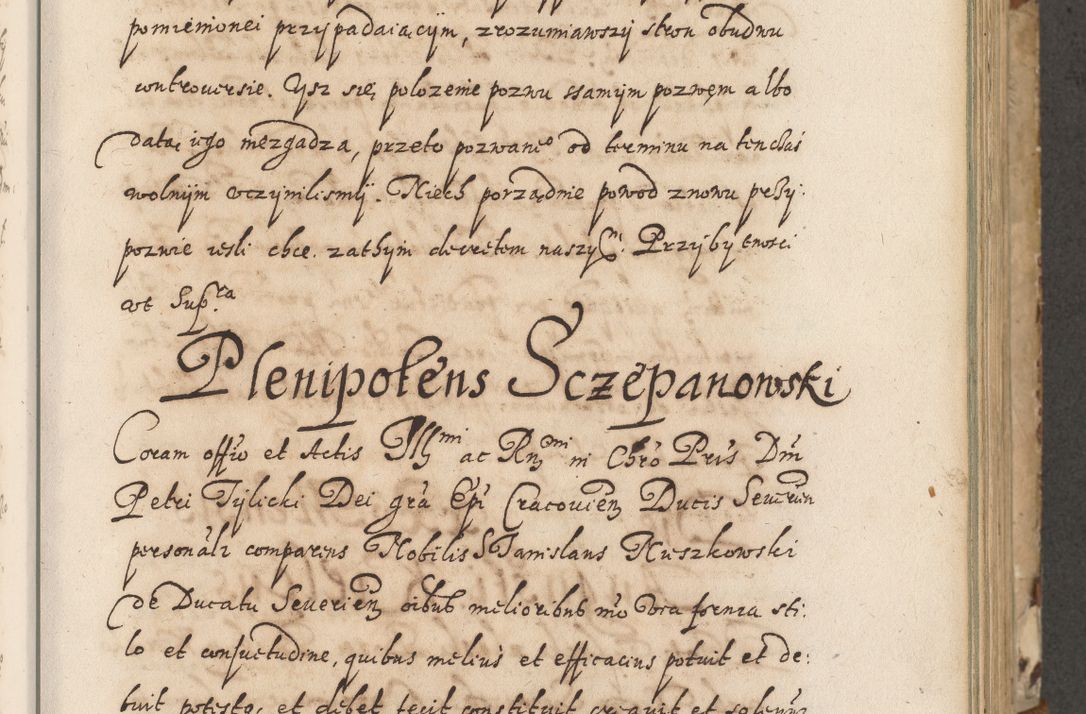 pomienionei przijpadaiącijm, zrozumiawszij stron obudwu
controuersie. Ijsz się polozenie pozwu ssamijm pozwęm albo
datą iego niezgadza, przeto pozwane⁰ od terminu na tenczas
wolnijm vczijnilismij. Niech porządnie powod znowu
pozwie iesli chce. zathijm decretem naszijm. Przijbijtnosci
vt Supra
Plenipotens Sczepanowski
Coram offio et Actis Illmi ac Rndmi in Chro Pris Dni
Petri Tijlicki Dei gra Epi Cracovien Ducis Severien
personalr comparens Nobilis Stanislaus Ruszkowski
de Ducatu Severien oibus melioribus mo via forma sti:
lo et consuetudine, quibus melius et efficacius potuit et de:
buit potesto; et debet fecit constituit creauit et solenr